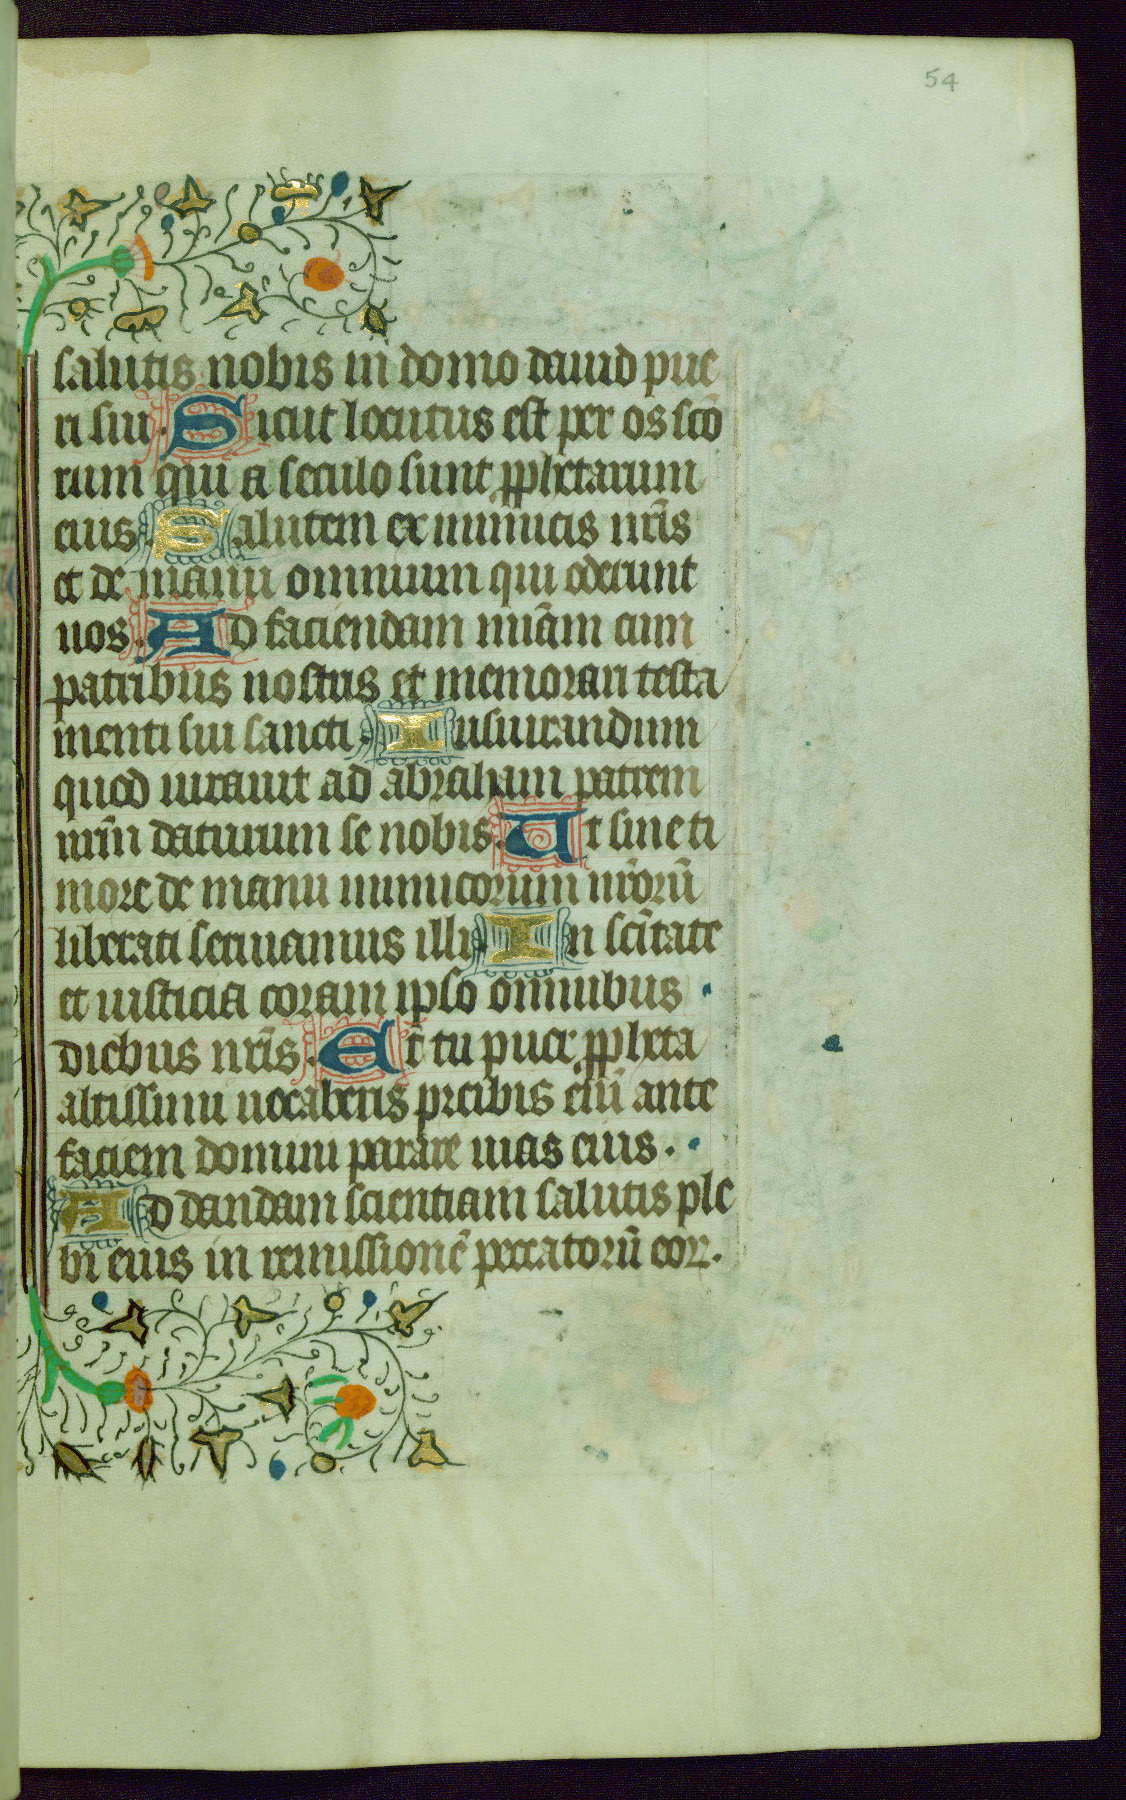 54
salutis nobis in domo dauid pue
ri sui. Sicut locutus est per os scõ
rum qui a seculo sunt pphetarum
eius. Salutem ex inimicis nr̃is
et de manu omnium qui oderunt
nos. Ad faciendam miãm cum
patribus nostris et memorari testa
menti sui sancti. Iusiurandum
quod iurauit ad abraham patrem
nrm̃ daturum se nobis. Ut sine ti
more de manu inimicorum nr̃orũ
liberati seruiamus illi. In scĩtate
et iusticia coram ipso omnibus
diebus nr̃is. Et tu puer ppheta
altissimi uocaberis preibis eim̃ ante
faciem domini parare uias eius.
Ad dandam scientiam salutis ple
bi eius in remissionẽ peccatorũ eoꝝ.